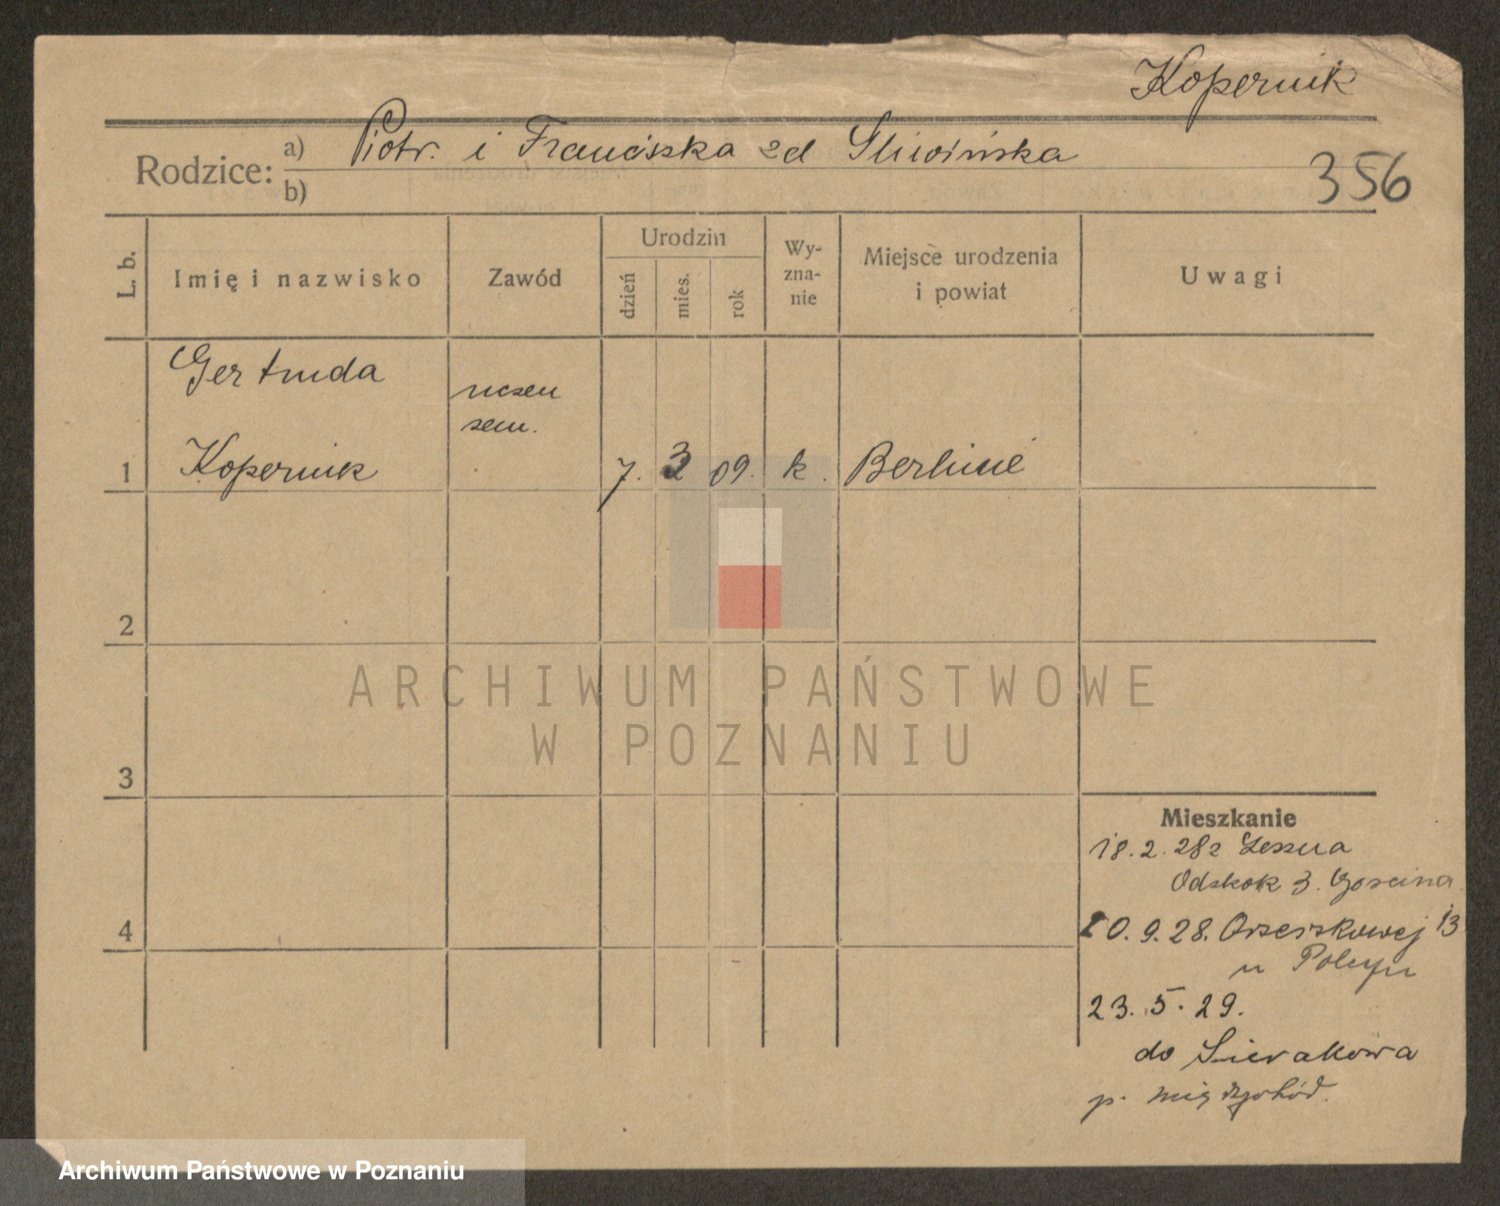 Kopernik
Rodzice: a) Piotr. i Franciszka zd Śliwińska
b)
356
L. b.
Imię i nazwisko
Zawód
Urodzin
dzień
mies.
rok
Wy-
zna-
nie
Miejsce urodzenia
i powiat
Uwagi
Gertruda
uczen
sem.
1 Kopernik 7. 3 09. k. Berlinie
2
ARCHIWUM PAŃSTWOWE
W POZNANIU
3
Mieszkanie
18.2.28 z Leszna
Odskok 3.
4
10.9.28. Orzeszkowej 13
23.5.29.
do Sierakowa
p. międzychód.
Archiwum Państwowe w Poznaniu